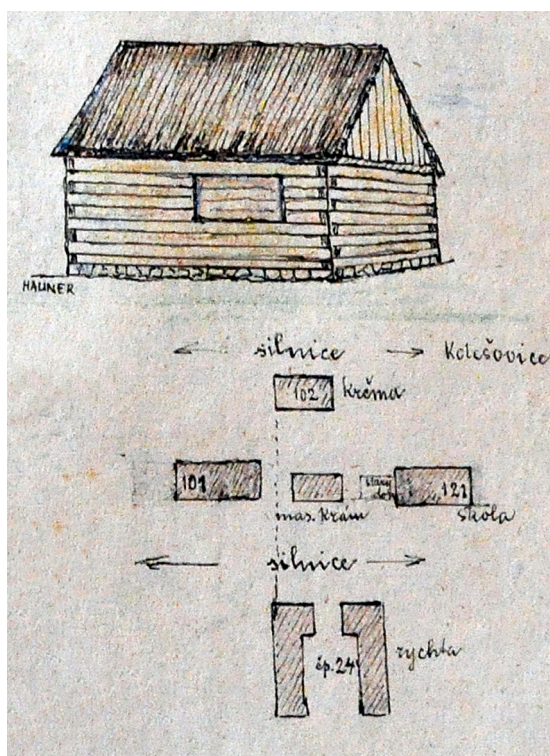 HAUNER
silnice Kolešovice
102 krčma
101 starý 121
mas. krám škola
silnice
čp. 24 rychta